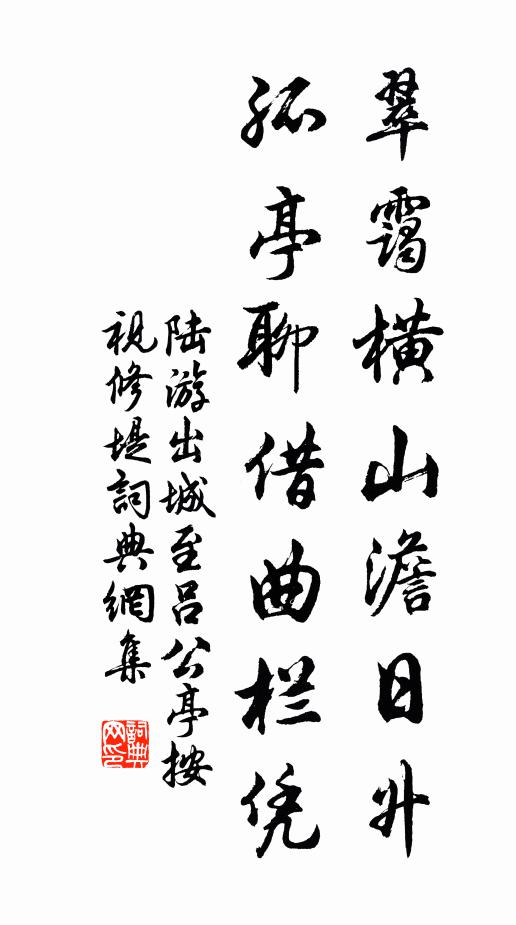 翠霭横山澹日升
孤亭聊借曲栏凭
陆游出城至吕公亭按
视修堤詞典網集
詞典